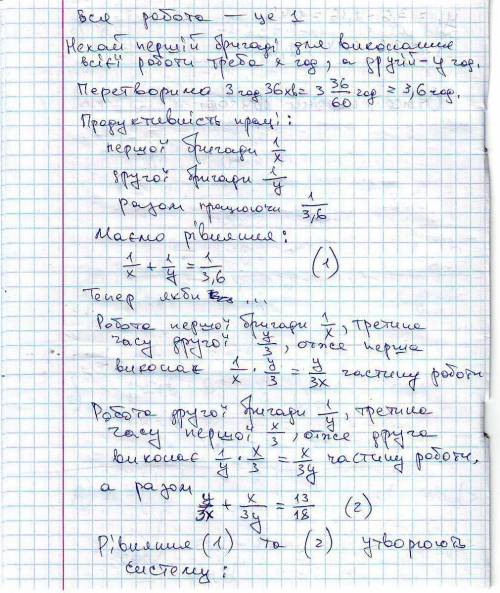 Вся робота — це 1
Нехай першій бригаді для виконання
всієї роботи треба x год, а другій – y год.
Перетворимо 3 год 36 хв = 3 36/60 год = 3,6 год.
Продуктивність праці:
першої бригади 1/x
другої бригади 1/y
разом працюючи 1/3,6
Маємо рівняння:
1/x + 1/y = 1/3,6 (1)
Тепер якби ...
Робота першої бригади 1/x, третина
часу другої y/3, отже перша
виконає 1/x · y/3 = y/3x частину роботи
Робота другої бригади 1/y, третина
часу першої x/3, отже друга
виконає 1/y · x/3 = x/3y частину роботи,
а разом
y/3x + x/3y = 13/18 (2)
Рівняння (1) та (2) утворюють
систему: